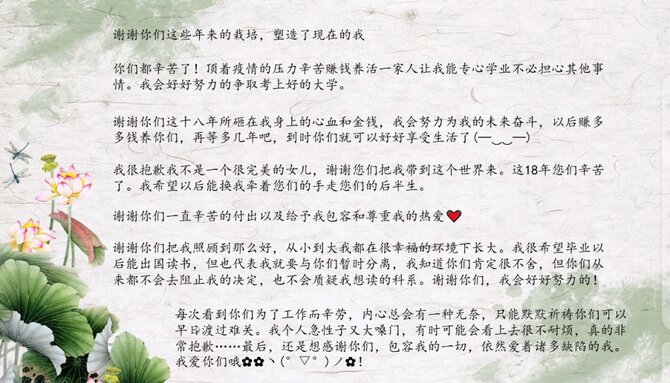 谢谢你们这些年来的栽培，塑造了现在的我
你们都辛苦了！顶着疫情的压力辛苦赚钱养活一家人让我能专心学业不必担心其他事
情。我会好好努力的争取考上好的大学。
谢谢你们这十八年所砸在我身上的心血和金钱，我会努力为我的未来奋斗，以后赚多
多钱养你们，再等多几年吧，到时你们就可以好好享受生活了(─‿‿─)
我很抱歉我不是一个很完美的女儿，谢谢您们把我带到这个世界来。这18年您们辛苦
了。我希望以后能换我牵着您们的手走您们的后半生。
谢谢你们一直辛苦的付出以及给予我包容和尊重我的热爱❤
谢谢你们把我照顾到那么好，从小到大我都在很幸福的环境下长大。我很希望毕业以
后能出国读书，但也代表我就要与你们暂时分离，我知道你们肯定很不舍，但你们从
来都不会去阻止我的决定，也不会质疑我想读的科系。谢谢你们，我会好好努力的！
每次看到你们为了工作而辛劳，内心总会有一种无奈，只能默默祈祷你们可以
早日渡过难关。我个人急性子又大嗓门，有时可能会看上去很不耐烦，真的非
常抱歉……最后，还是想感谢你们，包容我的一切，依然爱着诸多缺陷的我。
我爱你们哦✿✿ヽ(°▽°)ノ✿！